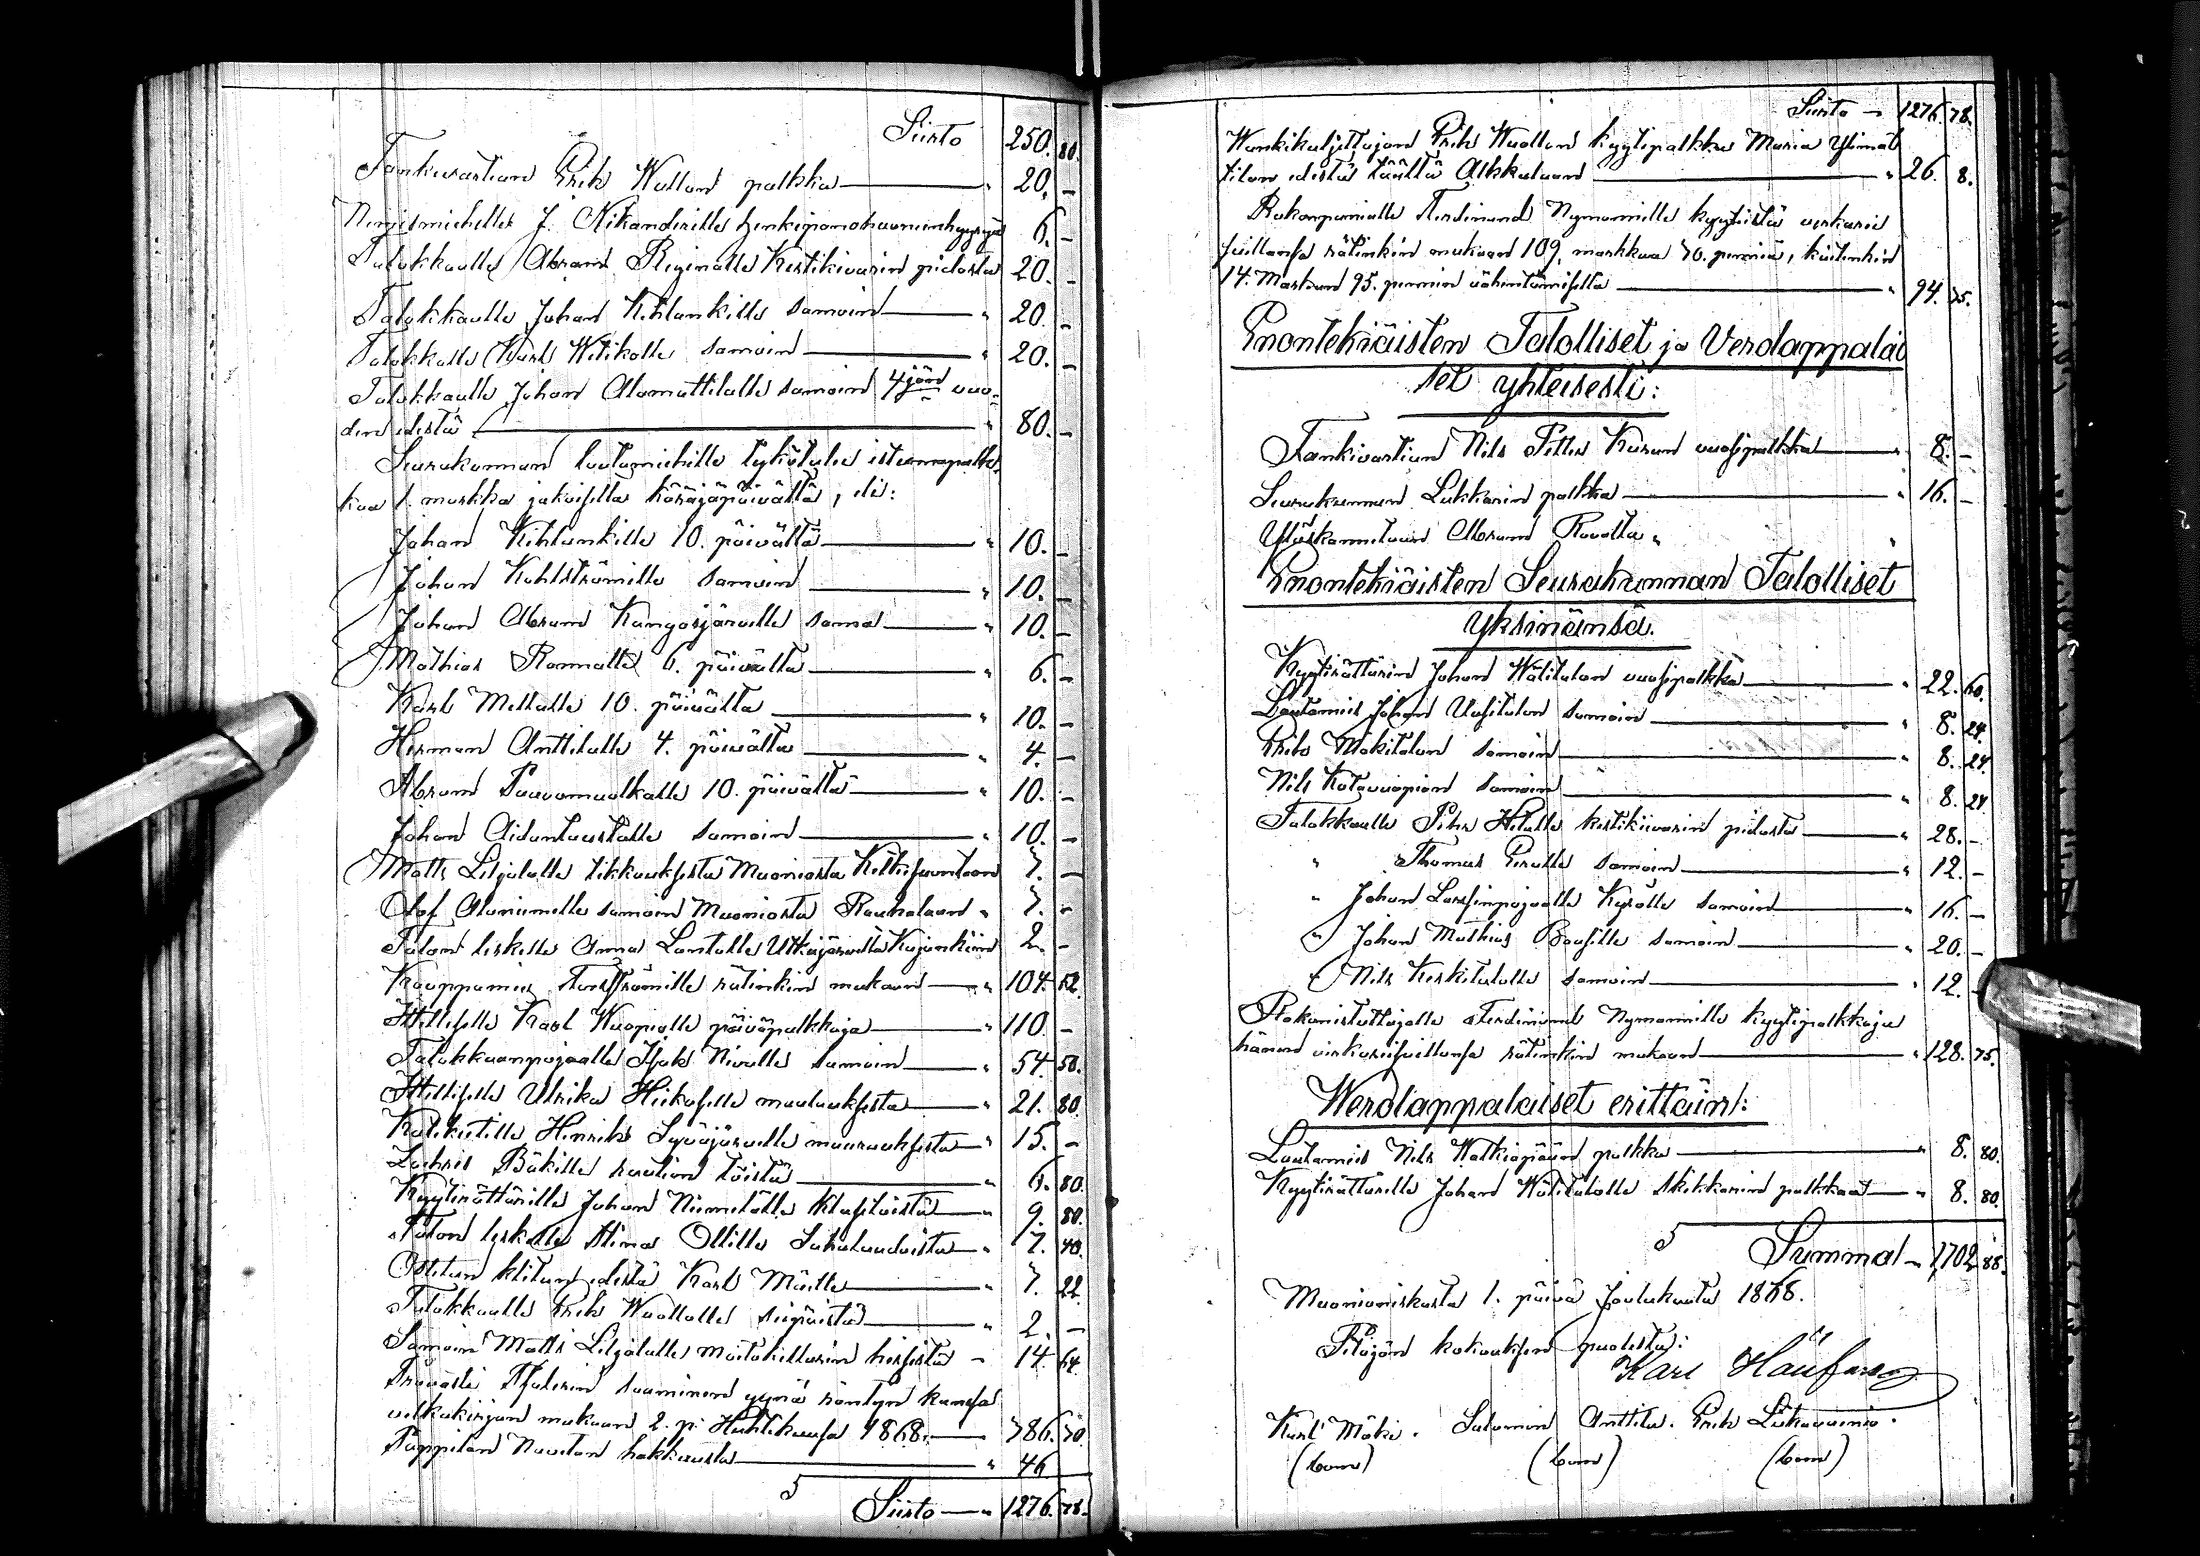 Siirto 250. 80.
Fankivartian Erik Wuollon palkka — " 20. —
Nimismiehelle J. Nikanderille henkipanohuoneenhyyryä 6. —
Talokkaalle Abram Reginalle Kestikivarin pidosta 20. —
Talokkaalle Johan Kihlankille samoin — " 20. —
Talokkalle Karl Witikalle samoin — " 20. —
Talokkaalle Johan Alamuttilalle samoin 4jän vuo-
den edestä — " 80. —
Seurakunnan lautamiehille istumapalk-
kaa 1. markka jokaiselta käräjäpäivältä, eli:
Johan Kihlankille 10. päivältä — " 10. —
Johan Kohlströmille samoin — " 10. —
Johan Abram Kangosjärvelle sama — " 10. —
Mathias Rannalle 6. päivältä — " 6. —
Karl Mellalle 10. päivältä — " 10. —
Herman Anttilalle 4. päivältä — " 4. —
Abram Paavomuotkalle 10. päivältä — " 10. —
Johan Aidantaustalle samoin — " 10. —
Matts Liljalalle tikkauksesta Muoniosta Kätkesuantoon 7. —
Olof Alaniemelle samoin Muoniosta Rauhalaan " 7. —
Talon leskelle Anna Lantolle 2. —
Kauppamies rätinkin mukaan — " 104. 52.
Itelliselle Karl Wuopiolle päiväpalkkoja — " 110 —
Talokkaanpojaalle Isak Nivalle samoin — " 54. 50.
Itelliselle Ulrika Heikaselle maalauksesta — " 21. 80.
Henrik Syväjärvelle muurauksesta — " 15. —
Zachris Bäkille raution töistä — " 6. 80.
Kyytirättärille Johan Niemelälle — " 9. 80.
Talon leskelle Stina Ollille Sahalaudoista — " 7. 40.
Ostetun edestä Karl Mäelle — " 7. 22.
Talokkaalle Erik Wuollolle — " 2. —
Samoin Matts Liljalalle hirsistä — 14. 64.
Provasti
velkakirjan mukaan 2. p. Huhtikuusa 1868. — 786. 70.
Pappilan Navetan hakkuusta — " 46
Siirto — " 1276. 78.
Siirto — 1276. 78.
Wankikuljettajan Erik Wuollon kyytipalkka Maria Ylimut
tilan edestä täältä Alkkulaan — " 26. 8.
Rokonpanialle Ferdinand Nymannille kyytistä virkarei
suillansa rätinkin mukaan 109. markkaa 70. penniä, kuitenkin
14. Markan 95. pennin vähentämisellä — " 94. 75.
Enontekiäisten Talolliset ja Verolappalai
set yhteisesti:
Fankivartian Nils Petter Kurun vuosipalkka — " 8. —
Seurakunnan Lukkarin palkka — " 16. —
Ylöskannituan Abram Rovalta "
Enontekiäisten Seurakunnan Talolliset
Yksinänsä.
Kyytirättärin Johan Wälitalon vuosipalkka — " 22. 60.
Lautamies Johan Uusitalon samoin — " 8. 24.
Erik Mäkitalon samoin — " 8. 24.
Nils Kotavuopion samoin — " 8. 24
Talokkaalle Petter Hetalle kestikiivarin pidosta — " 28. —
" Thomas Peralle samoin — " 12. —
" Johan Lassinpojaalle Kyrölle samoin — " 16. —
" Johan Mathias samoin — " 20. —
" Nils Keskitalolle samoin — " 12. —
Rokonistuttajalle Ferdinand Nymannille kyytipalkkoja
hänen virkareisuillansa rätinkin mukaan — " 128. 75.
Werolappalaiset erittäin:
Lautamies Nils palkka — " 8. 80.
Kyytirättärille Johan Wälitalolle Skikkarin palkkaa — " 8. 80.
Summa — 1,702. 88.
Muonionniskasta 1. päivä Joulukuuta 1868.
Pitäjän kokouksen puolesta:
Karl
Karl Mäki. Salomon Anttila. Erik Liikavainio.
(bom) (bom) (bom)